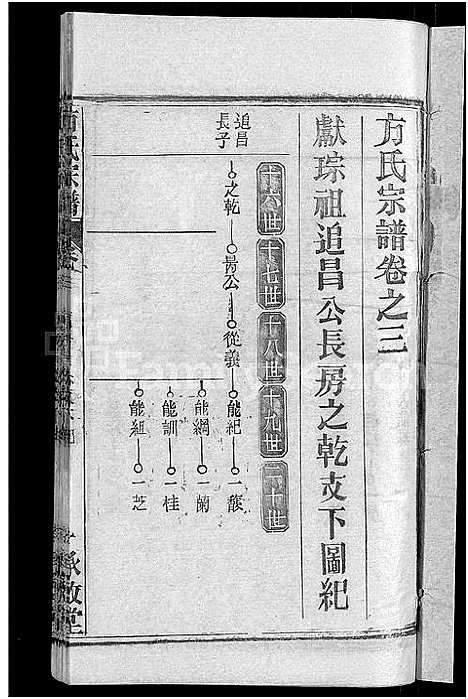 方氏宗譜卷之三
獻琮祖追昌公長房之乾支下圖紀
十六世 十七世 十八世 十九世 二十世
追昌長子 之乾 從義 能紀 一馥
能綱 一蘭
能訓 一桂
能組 一芝
方氏宗譜